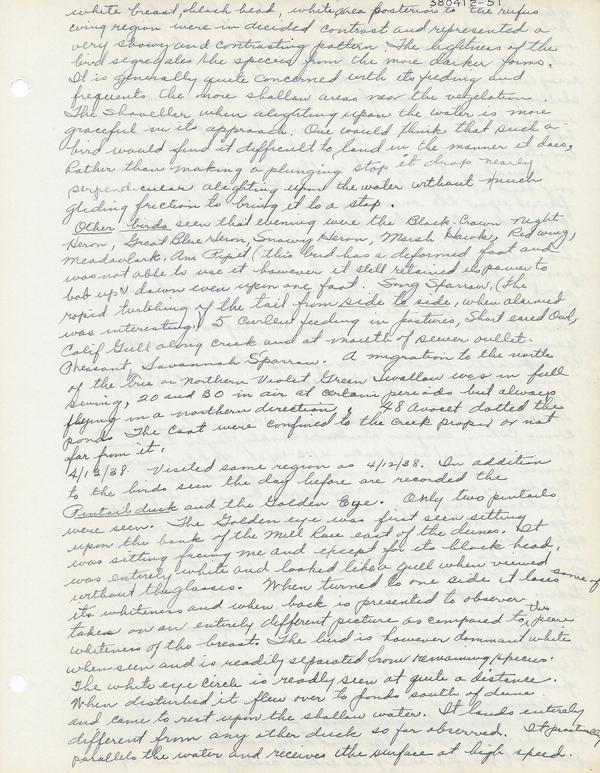 380412-51
white breast, black head, white area posterior to the rufus
wing region were in decided contrast and represented a
very showy and contrasting pattern. The lightness of the
bird segregates the species from the more darker forms.
It is generally quite concerned with its feeding and
frequents the more shallow areas near the vegetation.
The Shoveller when alighting upon the water is more
graceful in its approach. One would think that such a
bird would find it difficult to land in the manner it does,
Rather than making a plunging stop it drop nearly
perpendicular alighting upon the water without much
gliding friction to bring it to a stop.
Other birds seen this evening were the Black-Crown Night
Heron, Great Blue Heron, Snowy Heron, Marsh Hawk, Redwing,
Meadowlark, Am Pipit (this bird has a deformed foot and
was not able to use it however it still retained its power to
bob up & down even upon one foot. Song Sparrow, (the
rapid turning of the tail from side to side, when alarmed
was interesting) 5 Curlew feeding in pastures, Short eared Owl,
Calif Gull along creek and at mouth of sewer outlet.
Pheasant, Savannah Sparrow. A migration to the north
of the Tree or Northern Violet Green Swallow was in full
swing, 20 and 30 in air at certain periods but always
flying in a northern direction; 48 Avocet dotted the
ponds. The Coot were confined to the Creek proper or not
far from it.
4/13/38. Visited same region as 4/12/38. In addition
to the birds seen the day before are recorded the
Pintail duck and the Golden Eye. Only two pintails
were seen. The Golden eye was first seen sitting
upon the bank of the Mill Race east of the dunes. It
was sitting facing me and except for its black head,
was entirely white and looked like a gull when viewed
without the glasses. When turned to one side it loses some of
its whiteness and when back is presented to observer
takes on an entirely different picture as compared to the pure
whiteness of the breast. The bird is however dominant white
when seen and is readily separated from remaining species.
The white eye circle is readly seen at quite a distance.
When disturbed it flew over to ponds south of dune
and came to rest upon the shallow water. It lands entirely
different from any other duck so far observed. It practically
parallels the water and receives the surface at high speed.